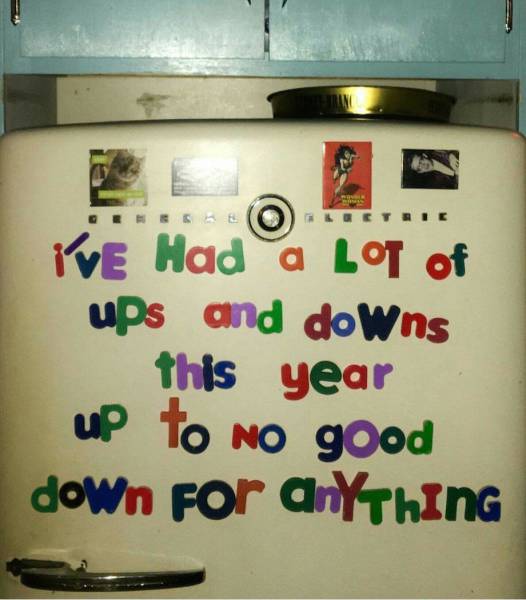 WONDER WOMAN
GENERAL ELECTRIC
i'vE Had a LoT of
uPs and doWns
this year
uP to No gOod
doWn FOr anYThING